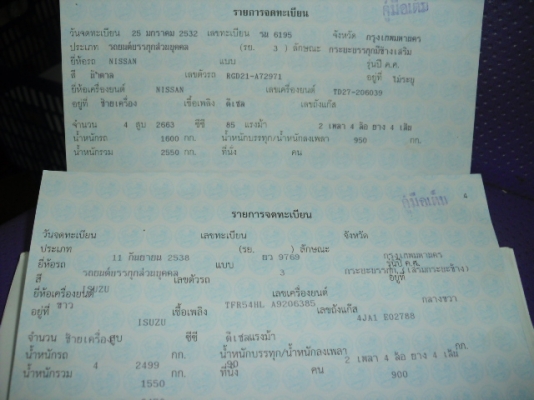 รายการจดทะเบียน
วันจดทะเบียน 25 มกราคม 2532 เลขทะเบียน 6195 จังหวัด กรุงเทพมหานคร
ประเภท รถยนต์บรรทุกส่วนบุคคล (รย. 3 ) ลักษณะ กระบะบรรทุกมีข้างเสริม
ยี่ห้อรถ NISSAN แบบ รุ่นปี ค.ศ.
สี น้ำตาล เลขตัวรถ BGD21-A72971 อยู่ที่ ไม่ระบุ
ยี่ห้อเครื่องยนต์ NISSAN เลขเครื่องยนต์ TD27-206039
อยู่ที่ ซ้ายเครื่อง เชื้อเพลิง ดีเซล เลขถังแก๊ส
จำนวน 4 สูบ 2663 ซีซี 85 แรงม้า 2 เพลา 4 ล้อ ยาง 4 เส้น
น้ำหนักรถ 1600 กก. น้ำหนักบรรทุก/น้ำหนักลงเพลา 950 กก.
น้ำหนักรวม 2550 กก. ที่นั่ง คน
รายการจดทะเบียน
วันจดทะเบียน เลขทะเบียน จังหวัด
ประเภท 11 กันยายน 2538 (รย. ) ลักษณะ 9769 กรุงเทพมหานคร
ยี่ห้อรถ รถยนต์บรรทุกส่วนบุคคล แบบ 3 รุ่นปี ค.ศ.
สี ISUZU เลขตัวรถ อยู่ที่
ยี่ห้อเครื่องยนต์ TFR54HL A9206385 เลขเครื่องยนต์ กลางขวา
อยู่ที่ ขาว ISUZU เชื้อเพลิง เลขถังแก๊ส 4JA1 E02789
จำนวน ซ้ายเครื่อง สูบ ซีซี ดีเซล แรงม้า
น้ำหนักรถ 4 2499 กก. น้ำหนักบรรทุก/น้ำหนักลงเพลา 90 2 เพลา 4 ล้อ ยาง 4 เส้น กก.
น้ำหนักรวม 1550 กก. ที่นั่ง คน 900